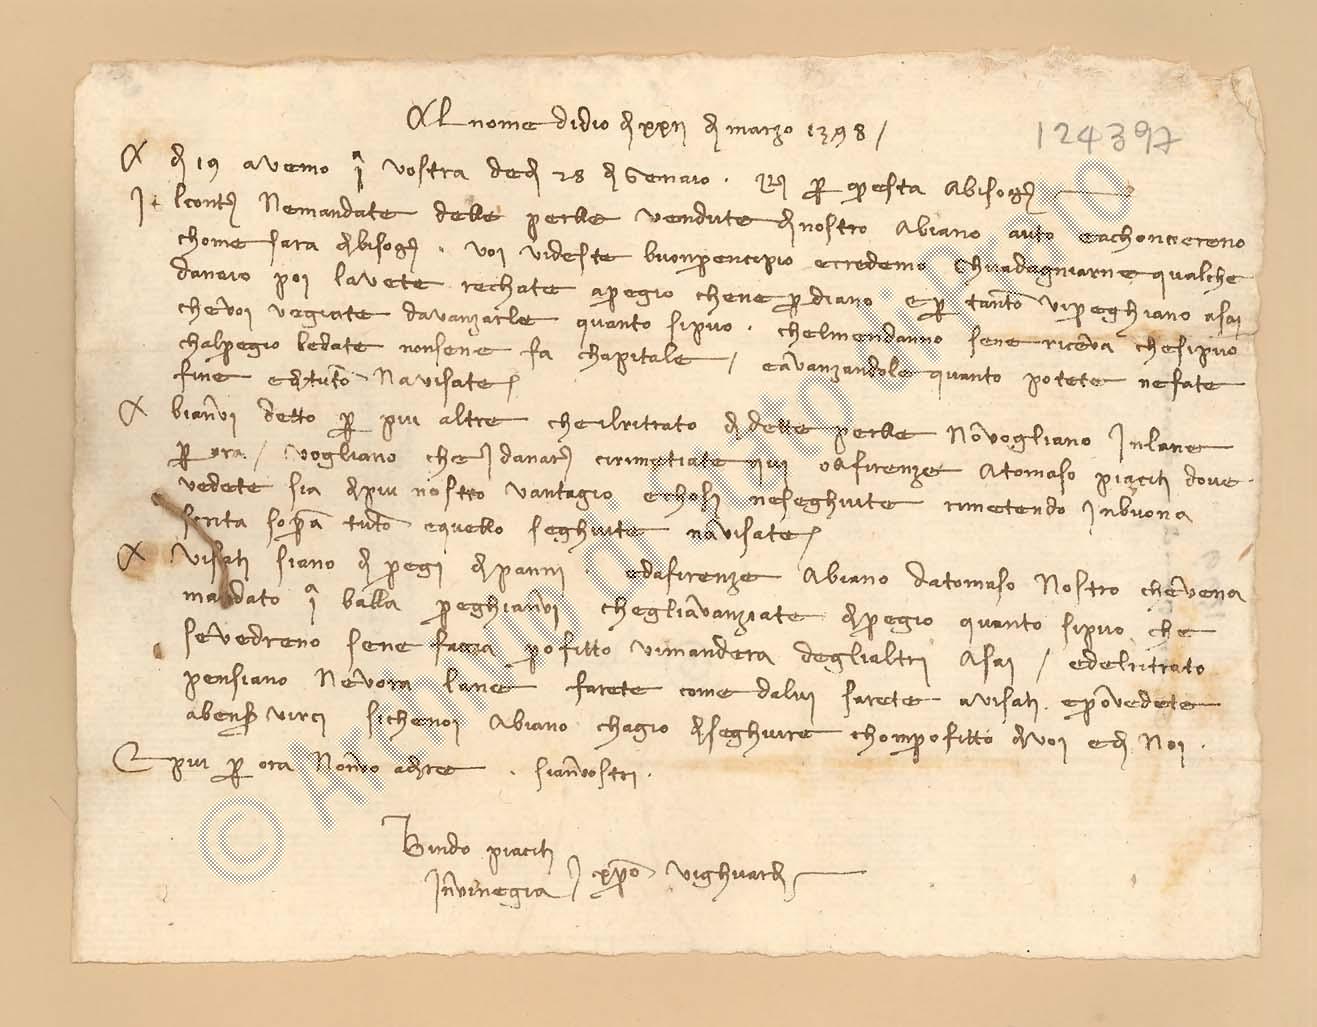 Al nome di dio dì xxii di marzo 1398 /
124397
A dì 19 avemo 1ª vostra de dì 28 di genaio . R. per questa a bisogni
I lconto ne mandate delle perlle vendute di nostro abiano auto e achonceremo
chome sarà di bisogno . voi videste buon prencipio e credemo ghuadagniarne qualche
danaio poi l avete rechate a pegio che ne perdiano e per tanto vi preghiano asai
che voi vegiate d avanzarle quanto si può . che l men danno se ne riceva che si può
ch al pregio le date non se ne fa chapitale / e avanzandole quanto potete ne fate
fine e di tutto n avisate
A bianvi detto per più altre che il ritrato di dette perlle no vogliano in lane
per ora / vogliano che i danari ci rimetiate qui o a firenze a tomaso piaciti dove
vedete sia di più nostro vantagio e chosì ne seghuite rimetendo in buona
scrita sopra tutto e quello seghuite n avisate
A visati siano di pregi di panni e da firenze abiano da tomaso nostro che ve n à
mandato 1ª balla preghianvi che gli avanziate di pregio quanto si può che
se vedreno se ne facia profitto vi manderà degli altri asai / e del ritrato
pensiano ne vorà lane farete come da lui sarete avisati . e provedete
a ben servirci sì che noi abiano chagio di seghuire chon profitto di voi e di noi .
E più per ora non vo a dire . sian vostri .
Bindo piaciti
in vinegia / xpo vi ghuardi
© Archivio di Stato di Prato